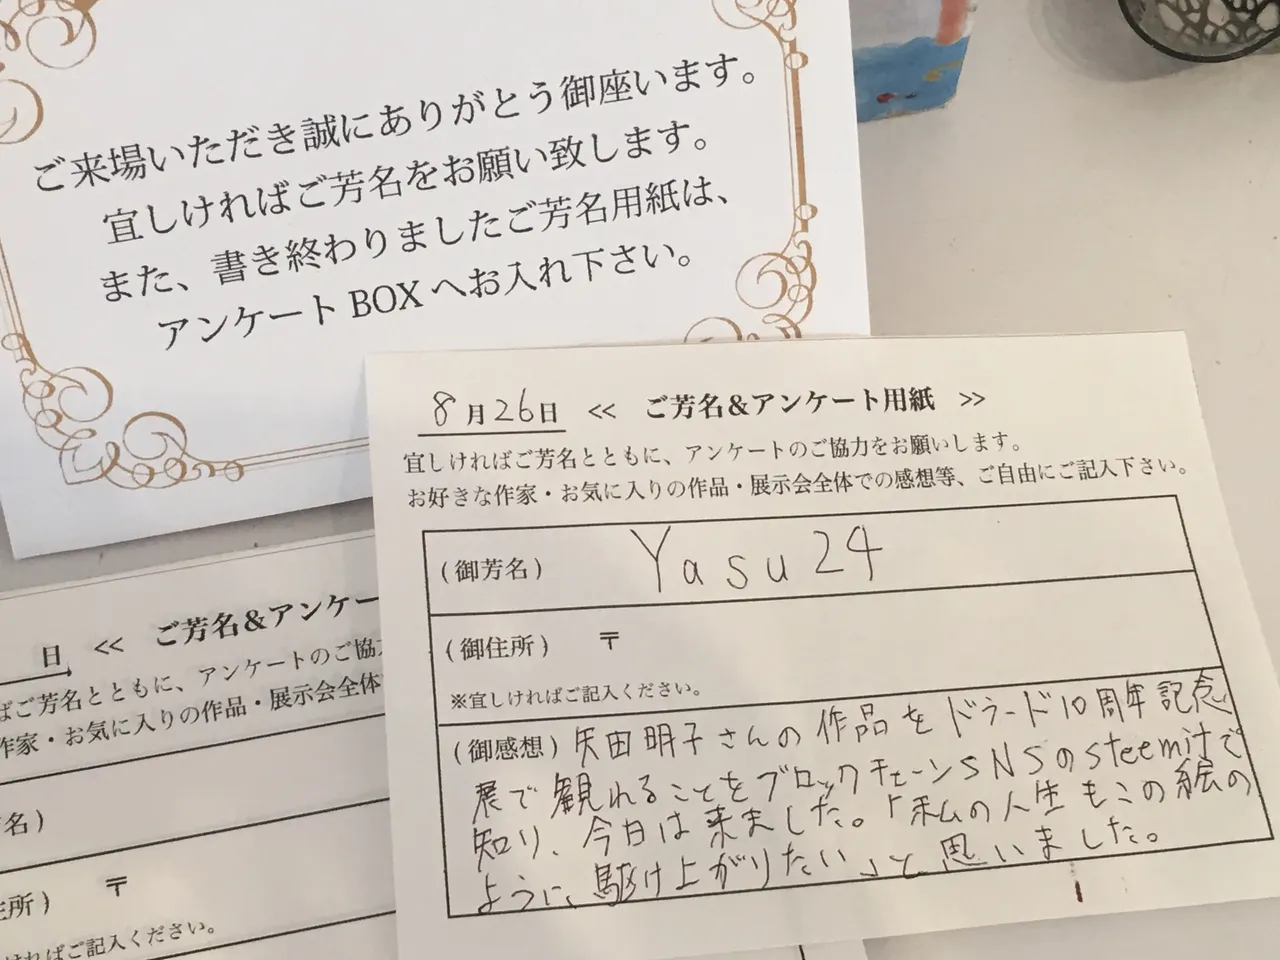 ご来場いただき誠にありがとう御座います。
宜しければご芳名をお願い致します。
また、書き終わりましたご芳名用紙は、
アンケートBOXへお入れ下さい。
8月26日 << ご芳名&アンケート用紙 >>
宜しければご芳名とともに、アンケートのご協力をお願いします。
お好きな作家・お気に入りの作品・展示会全体での感想等、ご自由にご記入下さい。
(御芳名) Yasu24
(御住所) 〒
※宜しければご記入ください。
(御感想) 矢田明子さんの作品をドラード10周年記念
展で観れることをブロックチェーンSNSのsteemitで
知り、今日は来ました。「私の人生もこの絵の
ように、駆け上がりたい」と思いました。
日 << ご芳名&アンケー
ばご芳名とともに、アンケートのご協
作家・お気に入りの作品・展示会全体
芳名)
住所) 〒
ければご記入ください。